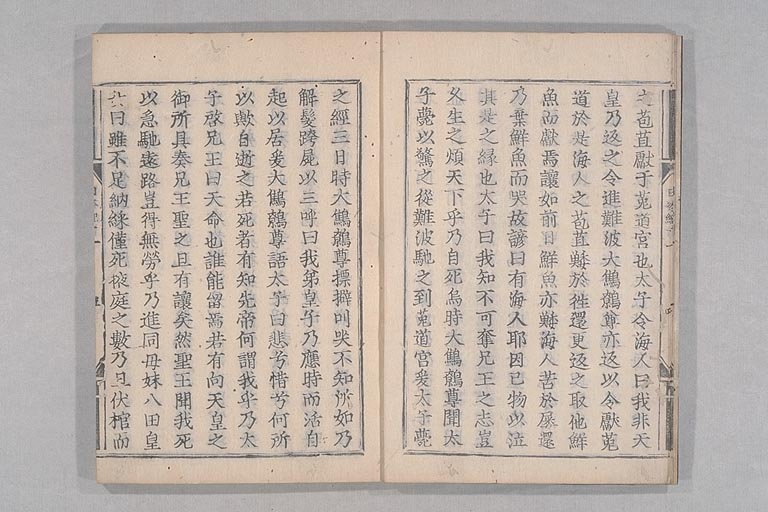 之苞苴獻于菟道宮也太子令海人曰我非天
皇乃返之令進難波大鷦鷯尊亦返以令獻菟
道於是海人之苞苴鯘於往還更返之取他鮮
魚而獻焉讓如前日鮮魚亦鯘海人苦於屢還
乃棄鮮魚而哭故諺曰有海人耶因己物以泣
其是之緣也太子曰我知不可奪兄王之志豈
久生之煩天下乎乃自死焉時大鷦鷯尊聞太
子薨以驚之從難波馳之到菟道宮爰太子薨
之經三日時大鷦鷯尊摽擗叫哭不知所如乃
解髮跨屍以三呼曰我弟皇子乃應時而活自
起以居爰大鷦鷯尊語太子曰悲兮惜兮何所
以歟自逝之若死者有知先帝何謂我乎乃太
子啓兄王曰天命也誰能留焉若有向天皇之
御所具奏兄王聖之且有讓矣然聖王聞我死
以急馳遠路豈得無勞乎乃進同母妹八田皇
女曰雖不足納綵僅死掖庭之數乃且伏棺而